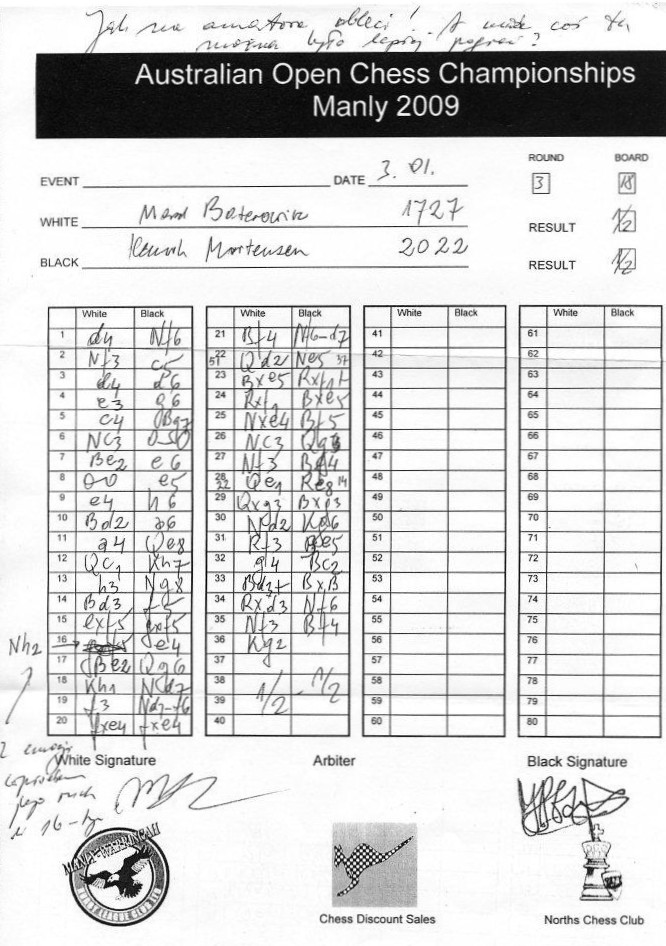 Jak na amatora obleci! A może coś tu
można było lepiej pograć?
Australian Open Chess Championships
Manly 2009
EVENT DATE 3. 01. ROUND 3 BOARD 18
WHITE 1727 RESULT 1/2
BLACK Mortensen 2022 RESULT 1/2
White Black White Black White Black White Black
1 d4 Nf6 21 Bf4 Nf6-d7 41 61
2 Nf3 c5 22 Qd2 Ne5 42 62
3 d4 d6 23 Bxe5 Rxf1+ 43 63
4 e3 g6 24 Rxf1 Bxe5 44 64
5 c4 Bg7 25 Nxe4 Bf5 45 65
6 Nc3 0-0 26 Nc3 Qg3 46 66
7 Be2 e6 27 Nf3 Bf4 47 67
8 0-0 e5 28 Qe1 Re8 48 68
9 e4 h6 29 Qxg3 Bxg3 49 69
10 Bd2 a6 30 Nd2 Kg6 50 70
11 a4 Qe8 31 Rf3 Be5 51 71
12 Qc1 Kh7 32 g4 Bc2 52 72
13 h3 Ng8 33 Bd3+ BxB 53 73
14 Bd3 f5 34 Rxd3 Nf6 54 74
15 exf5 gxf5 35 Nf3 Bf4 55 75
Nh2 16 e4 36 Kg2 56 76
17 Be2 Qg6 37 57 77
18 Kh1 Nd7 38 58 78
19 f3 Nd7-f6 39 1/2 - 1/2 59 79
20 fxe4 fxe4 40 60 80
White Signature Arbiter Black Signature
MANLY-WARRINGAH
Chess Discount Sales
Norths Chess Club